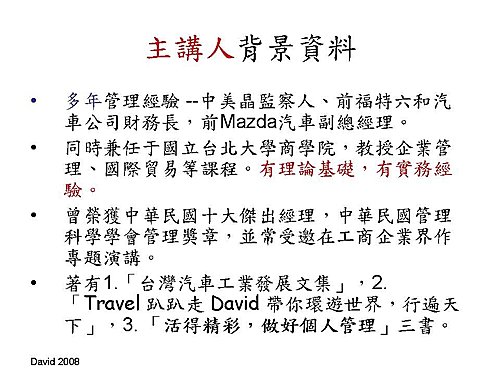 主講人背景資料
• 多年管理經驗 --中美晶監察人、前福特六和汽
車公司財務長，前Mazda汽車副總經理。
• 同時兼任于國立台北大學商學院，教授企業管
理、國際貿易等課程。有理論基礎，有實務經
驗。
• 曾榮獲中華民國十大傑出經理，中華民國管理
科學學會管理獎章，並常受邀在工商企業界作
專題演講。
• 著有1.「台灣汽車工業發展文集」，2.
「Travel 趴趴走 David 帶你環遊世界，行遍天
下」，3. 「活得精彩，做好個人管理」三書。
David 2008